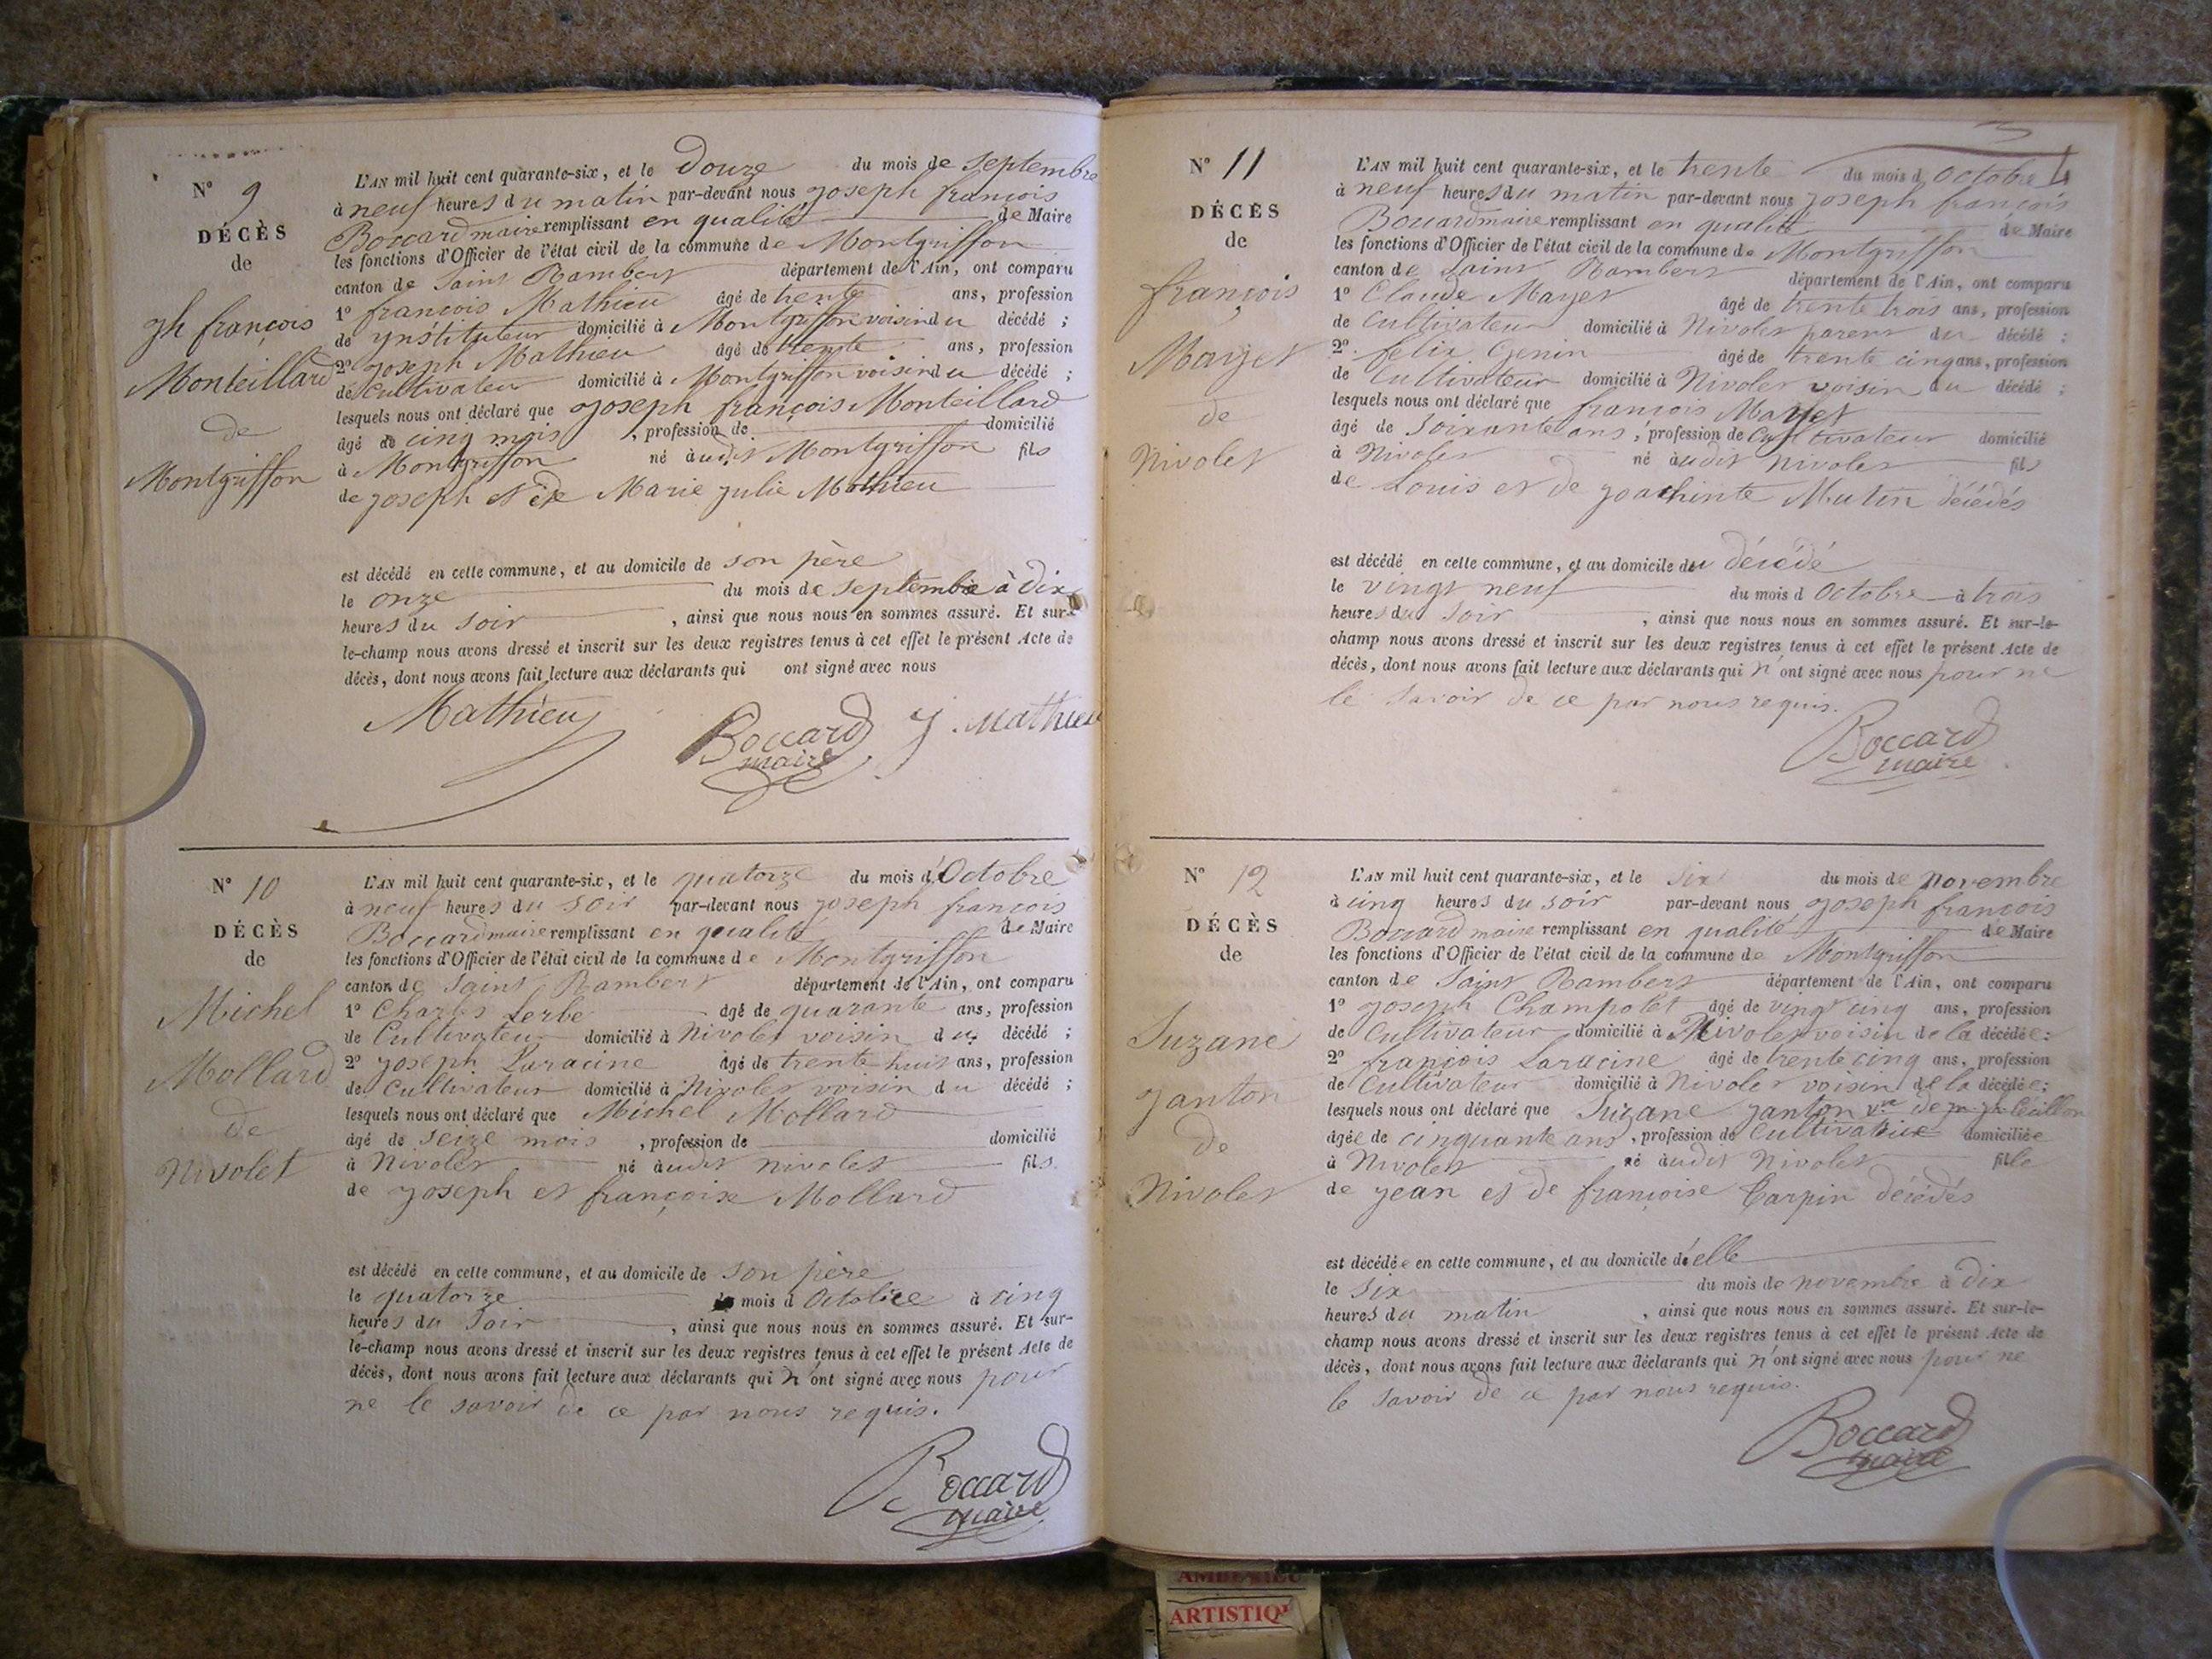 N° 9
DÉCÈS
de
Jh françois
Monteillard
de
Montgriffon
L'AN mil huit cent quarante-six, et le Douze du mois de Septembre
à neuf heures du matin par-devant nous Joseph françois
Boccard maire remplissant en qualité de Maire
les fonctions d'Officier de l'état civil de la commune de Montgriffon
canton de Saint Rambert département de l'Ain, ont comparu
1° françois Mathieu âgé de trente ans, profession
de ynstituteur domicilié à Montgriffon voisin du décédé ;
2° Joseph Mathieu âgé de trente ans, profession
de Cultivateur domicilié à Montgriffon voisin du décédé ;
lesquels nous ont déclaré que Joseph françois Monteillard
âgé de cinq mois , profession de domicilié
à Montgriffon né audit Montgriffon fils
de Joseph et de Marie Julie Mathieu
est décédé en cette commune, et au domicile de son père
le onze du mois de septembre à dix
heures du soir , ainsi que nous nous en sommes assuré. Et sur-
le-champ nous avons dressé et inscrit sur les deux registres tenus à cet effet le présent Acte de
décès, dont nous avons fait lecture aux déclarants qui ont signé avec nous
Mathieu Boccard J. Mathieu
maire
N° 10
DÉCÈS
de
Michel
Mollard
de
Nivolet
L'AN mil huit cent quarante-six, et le quatorze du mois d'Octobre
à neuf heures du soir par-devant nous Joseph françois
Boccard maire remplissant en qualité de Maire
les fonctions d'Officier de l'état civil de la commune de Montgriffon
canton de Saint Rambert département de l'Ain, ont comparu
1° Charles Lerbe âgé de quarante ans, profession
de Cultivateur domicilié à Nivolet voisin du décédé ;
2° Joseph Laracine âgé de trente huit ans, profession
de Cultivateur domicilié à Nivolet voisin du décédé ;
lesquels nous ont déclaré que Michel Mollard
âgé de seize mois , profession de domicilié
à Nivolet né audit nivolet fils
de Joseph et françoise Mollard
est décédé en cette commune, et au domicile de son père
le quatorze mois d Octobre à cinq
heures du soir , ainsi que nous nous en sommes assuré. Et sur-
le-champ nous avons dressé et inscrit sur les deux registres tenus à cet effet le présent Acte de
décès, dont nous avons fait lecture aux déclarants qui n'ont signé avec nous pour
ne le savoir de ce par nous requis.
Boccard
maire
N° 11
DÉCÈS
de
françois
Mayet
de
Nivolet
L'AN mil huit cent quarante-six, et le trente du mois d octobre
à neuf heures du matin par-devant nous Joseph françois
Boccard maire remplissant en qualité de Maire
les fonctions d'Officier de l'état civil de la commune de Montgriffon
canton de Saint Rambert département de l'Ain, ont comparu
1° Claude Mayet âgé de trente trois ans, profession
de Cultivateur domicilié à Nivolet parent du décédé ;
2° felix Genin âgé de trente cinq ans, profession
de Cultivateur domicilié à Nivolet voisin du décédé ;
lesquels nous ont déclaré que françois Mayet
âgé de soixante ans , profession de Cultivateur domicilié
à Nivolet né audit nivolet fils
de Louis et de Joachinte Mutin décédés
est décédé en cette commune, et au domicile du décédé
le vingt neuf du mois d Octobre à trois
heures du soir , ainsi que nous nous en sommes assuré. Et sur-le-
champ nous avons dressé et inscrit sur les deux registres tenus à cet effet le présent Acte de
décès, dont nous avons fait lecture aux déclarants qui n'ont signé avec nous pour ne
le savoir de ce par nous requis.
Boccard
maire
N° 12
DÉCÈS
de
Suzane
Janton
de
Nivolet
L'AN mil huit cent quarante-six, et le six du mois de novembre
à cinq heures du soir par-devant nous Joseph françois
Boccard maire remplissant en qualité de Maire
les fonctions d'Officier de l'état civil de la commune de Montgriffon
canton de Saint Rambert département de l'Ain, ont comparu
1° Joseph Champolet âgé de vingt cinq ans, profession
de Cultivateur domicilié à Nivolet voisin de la décédée ;
2° françois Laracine âgé de trente cinq ans, profession
de Cultivateur domicilié à Nivolet voisin de la décédée ;
lesquels nous ont déclaré que Suzane Janton vve de
âgée de cinquante ans , profession de Cultivatrice domiciliée
à Nivolet né audit Nivolet fille
de Jean et de françoise Carpin décédés
est décédée en cette commune, et au domicile d'elle
le six du mois de novembre à dix
heures du matin , ainsi que nous nous en sommes assuré. Et sur-le-
champ nous avons dressé et inscrit sur les deux registres tenus à cet effet le présent Acte de
décès, dont nous avons fait lecture aux déclarants qui n'ont signé avec nous pour ne
le savoir de ce par nous requis.
Boccard
maire
ARTISTIQU